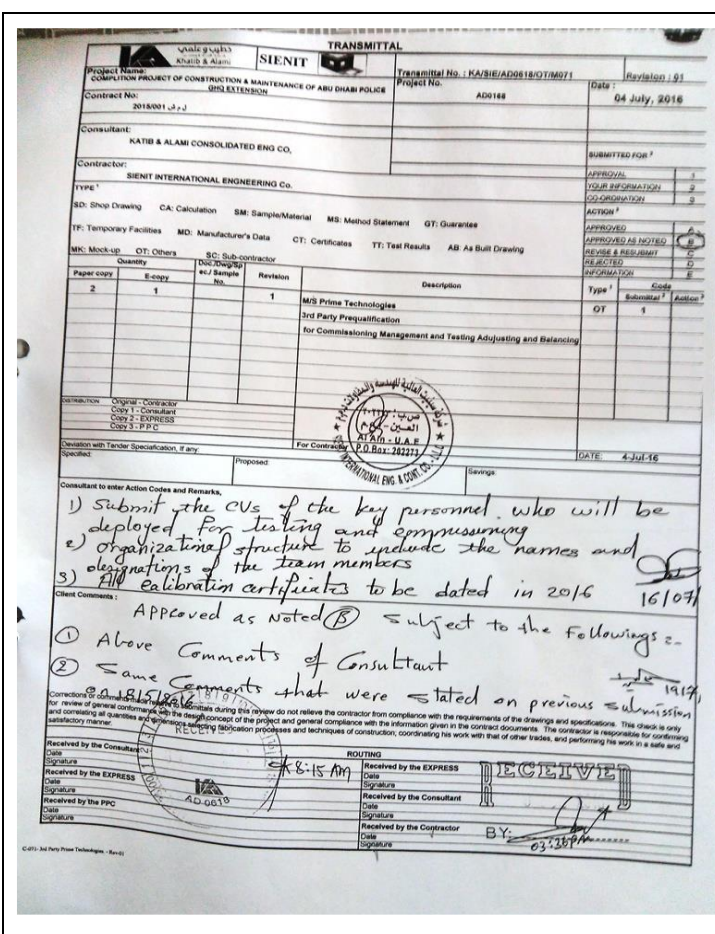 TRANSMITTAL
خطيب وعلمي
Khatib & Alami
SIENIT
Project Name:
COMPLITION PROJECT OF CONSTRUCTION & MAINTENANCE OF ABU DHABI POLICE
GHQ EXTENSION
Transmittal No. : KA/SIE/AD0618/OT/M071
Revision : 01
Project No.
AD0168
Date :
04 July, 2016
Contract No:
2015/001
Consultant:
KATIB & ALAMI CONSOLIDATED ENG CO,
SUBMITTED FOR
Contractor:
SIENIT INTERNATIONAL ENGNEERING Co.
APPROVAL 1
YOUR INFORMATION 2
CO-ORDINATION 3
TYPE
ACTION
SD: Shop Drawing CA: Calculation SM: Sample/Material MS: Method Statement GT: Guarantee
APPROVED A
TF: Temporary Facilities MD: Manufacturer's Data CT: Certificates TT: Test Results AB: As Built Drawing
APPROVED AS NOTED B
REVISE & RESUBMIT C
MK: Mock-up OT: Others SC: Sub-contractor
REJECTED D
INFORMATION E
Quantity
Doc./Dwg/Spec./ Sample No.
Revision
Description
Type
Code
Paper copy
E-copy
Submittal
Action
2 1 1
M/S Prime Technologies
OT 1
3rd Party Prequalification
for Commissioning Management and Testing Adujusting and Balancing
DISTRIBUTION
Original - Contractor
Copy 1 - Consultant
Copy 2 - EXPRESS
Copy 3 - P P C
ص ب
العين
Al Ain - U.A.E
P.O.Box: 202273
INTERNATIONAL ENG. & CONT. CO.
For Contractor
DATE: 4-Jul-16
Deviation with Tander Specialification, If any:
Specified:
Proposed:
Savings:
Consultant to enter Action Codes and Remarks,
1) Submit the CVs of the key personnel who will be
deployed for testing and commissioning
2) organizational structure to include the names and
designations of the team members
3) All calibration certificates to be dated in 2016
16/07/
Client Comments :
Approved as Noted (B) Subject to the Followings :-
① Above Comments of Consultant
② Same Comments that were stated on previous submission
on 18/5/2016
19/7/
for review of general conformance with the design concept of the project and general compliance with the information given in the contract documents. The contractor is responsible for confirming
and correlating all quantities and dimensions selecting fabrication processes and techniques of construction; coordinating his work with that of other trades, and performing his work in a safe and
satisfactory manner.
RECEIVED
AD-0618
8:15 AM
ROUTING
Received by the Consultant
Date
Signature
Received by the EXPRESS
Date
Signature
Received by the PPC
Date
Signature
Received by the EXPRESS
Date
Signature
Received by the Consultant
Date
Signature
Received by the Contractor
Date
Signature
RECEIVED
BY:
03:36 PM
C-071- 3rd Party Prime Technologies - Rev-01